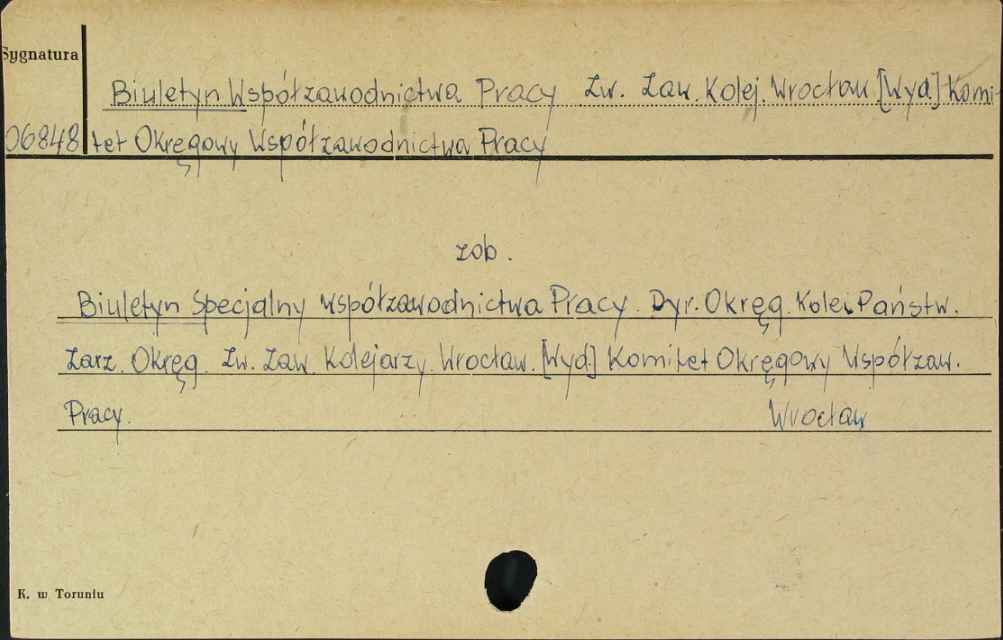 Sygnatura
Biuletyn Współzawodnictwa Pracy Zw. Zaw. Kolej. Wrocław [Wyd] Komi-
06848 tet Okręgowy Współzawodnictwa Pracy
zob.
Biuletyn Specjalny współzawodnictwa Pracy. Dyr. Okręg. Kolei Państw.
Zarz. Okręg. Zw. Zaw. Kolejarzy. Wrocław. [Wyd] Komitet Okręgowy Współzaw.
Pracy. Wrocław
K. w Toruniu